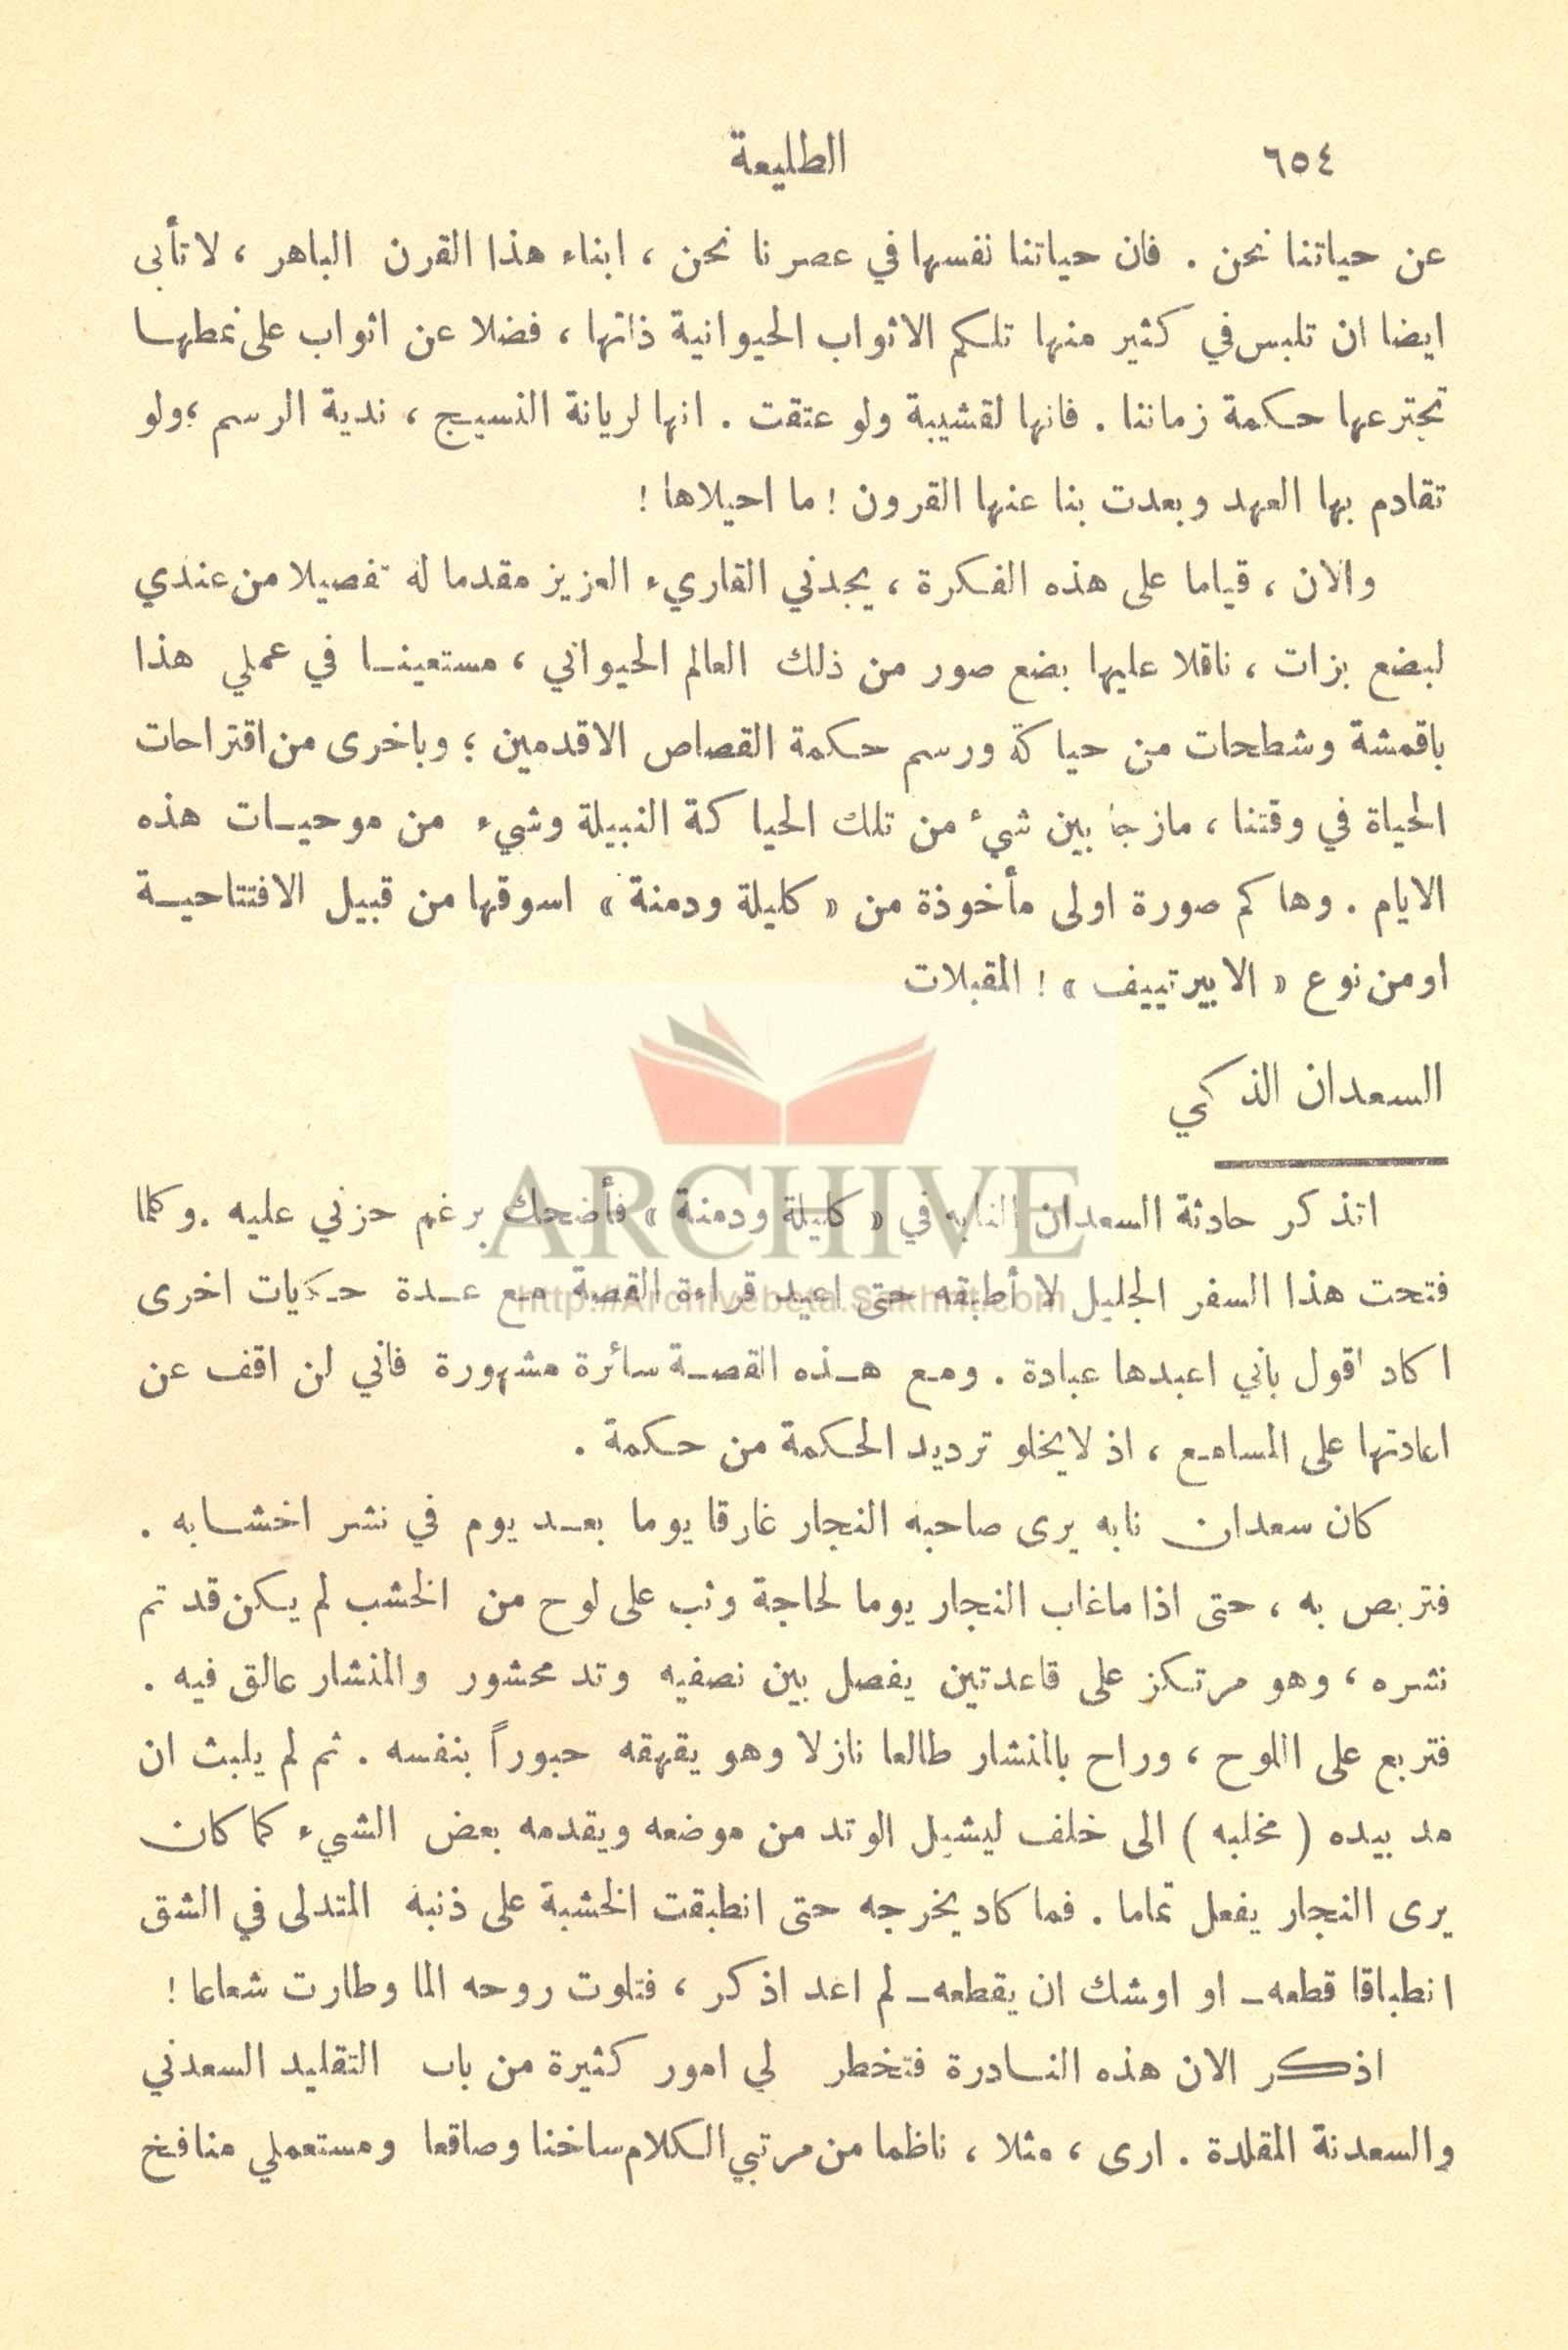 ٦٥٤
الطليعة
عن حياتنا نحن . فان حياتنا نفسها في عصرنا نحن ، ابناء هذا القرن الباهر ، لا تأبى
ايضا ان تلبس في كثير منها تلكم الاثواب الحيوانية ذاتها ، فضلا عن اثواب على نمطها
تجترعها حكمة زماننا . فانها لقشيبة ولو عتقت . انها لريانة النسيج ، ندية الرسم ، ولو
تقادم بها العهد وبعدت بنا عنها القرون ! ما احيلاها !
والان ، قياما على هذه الفكرة ، يجدني القاريء العزيز مقدما له تفصيلا من عندي
لبضع بزات ، ناقلا عليها بضع صور من ذلك العالم الحيواني ، مستعينا في عملي هذا
باقمشة وشطحات من حياكة ورسم حكمة القصاص الاقدمين ؛ وباخرى من اقتراحات
الحياة في وقتنا ، مازجا بين شيء من تلك الحياكة النبيلة وشيء من موحيات هذه
الايام . وهاكم صورة اولى مأخوذة من « كليلة ودمنة » اسوقها من قبيل الافتتاحية
او من نوع « الابيرتييف » ! المقبلات
السعدان الذكي
اتذكر حادثة السعدان النابه في « كليلة ودمنة » فأضحك برغم حزني عليه . وكلما
فتحت هذا السفر الجليل لا أطبقه حتى اعيد قراءة القصة مع عدة حكايات اخرى
اكاد اقول باني اعبدها عبادة . ومع هذه القصة سائرة مشهورة فاني لن اقف عن
اعادتها على المسامع ، اذ لا يخلو ترديد الحكمة من حكمة .
كان سعدان نابه يرى صاحبه النجار غارقا يوما بعد يوم في نشر اخشابه .
فتربص به ، حتى اذا ما غاب النجار يوما لحاجة وثب على لوح من الخشب لم يكن قد تم
نشره ، وهو مرتكز على قاعدتين يفصل بين نصفيه وتد محشور والمنشار عالق فيه .
فتربع على اللوح ، وراح بالمنشار طالعا نازلا وهو يقهقه حبوراً بنفسه . ثم لم يلبث ان
مد بيده ( مخلبه ) الى خلف ليشيل الوتد من موضعه ويقدمه بعض الشيء كما كان
يرى النجار يفعل تماما . فما كاد يخرجه حتى انطبقت الخشبة على ذنبه المتدلى في الشق
انطباقا قطعه ـ او اوشك ان يقطعه ـ لم اعد اذكر ، فتلوت روحه الما وطارت شعاعا !
اذكر الان هذه النادرة فتخطر لي امور كثيرة من باب التقليد السعدني
والسعدنة المقلدة . ارى ، مثلا ، ناظما من مرتبي الكلام ساخنا وصاقعا ومستعملي منافخ
ARCHIVE
http://Archivebeta.Sakhrit.com